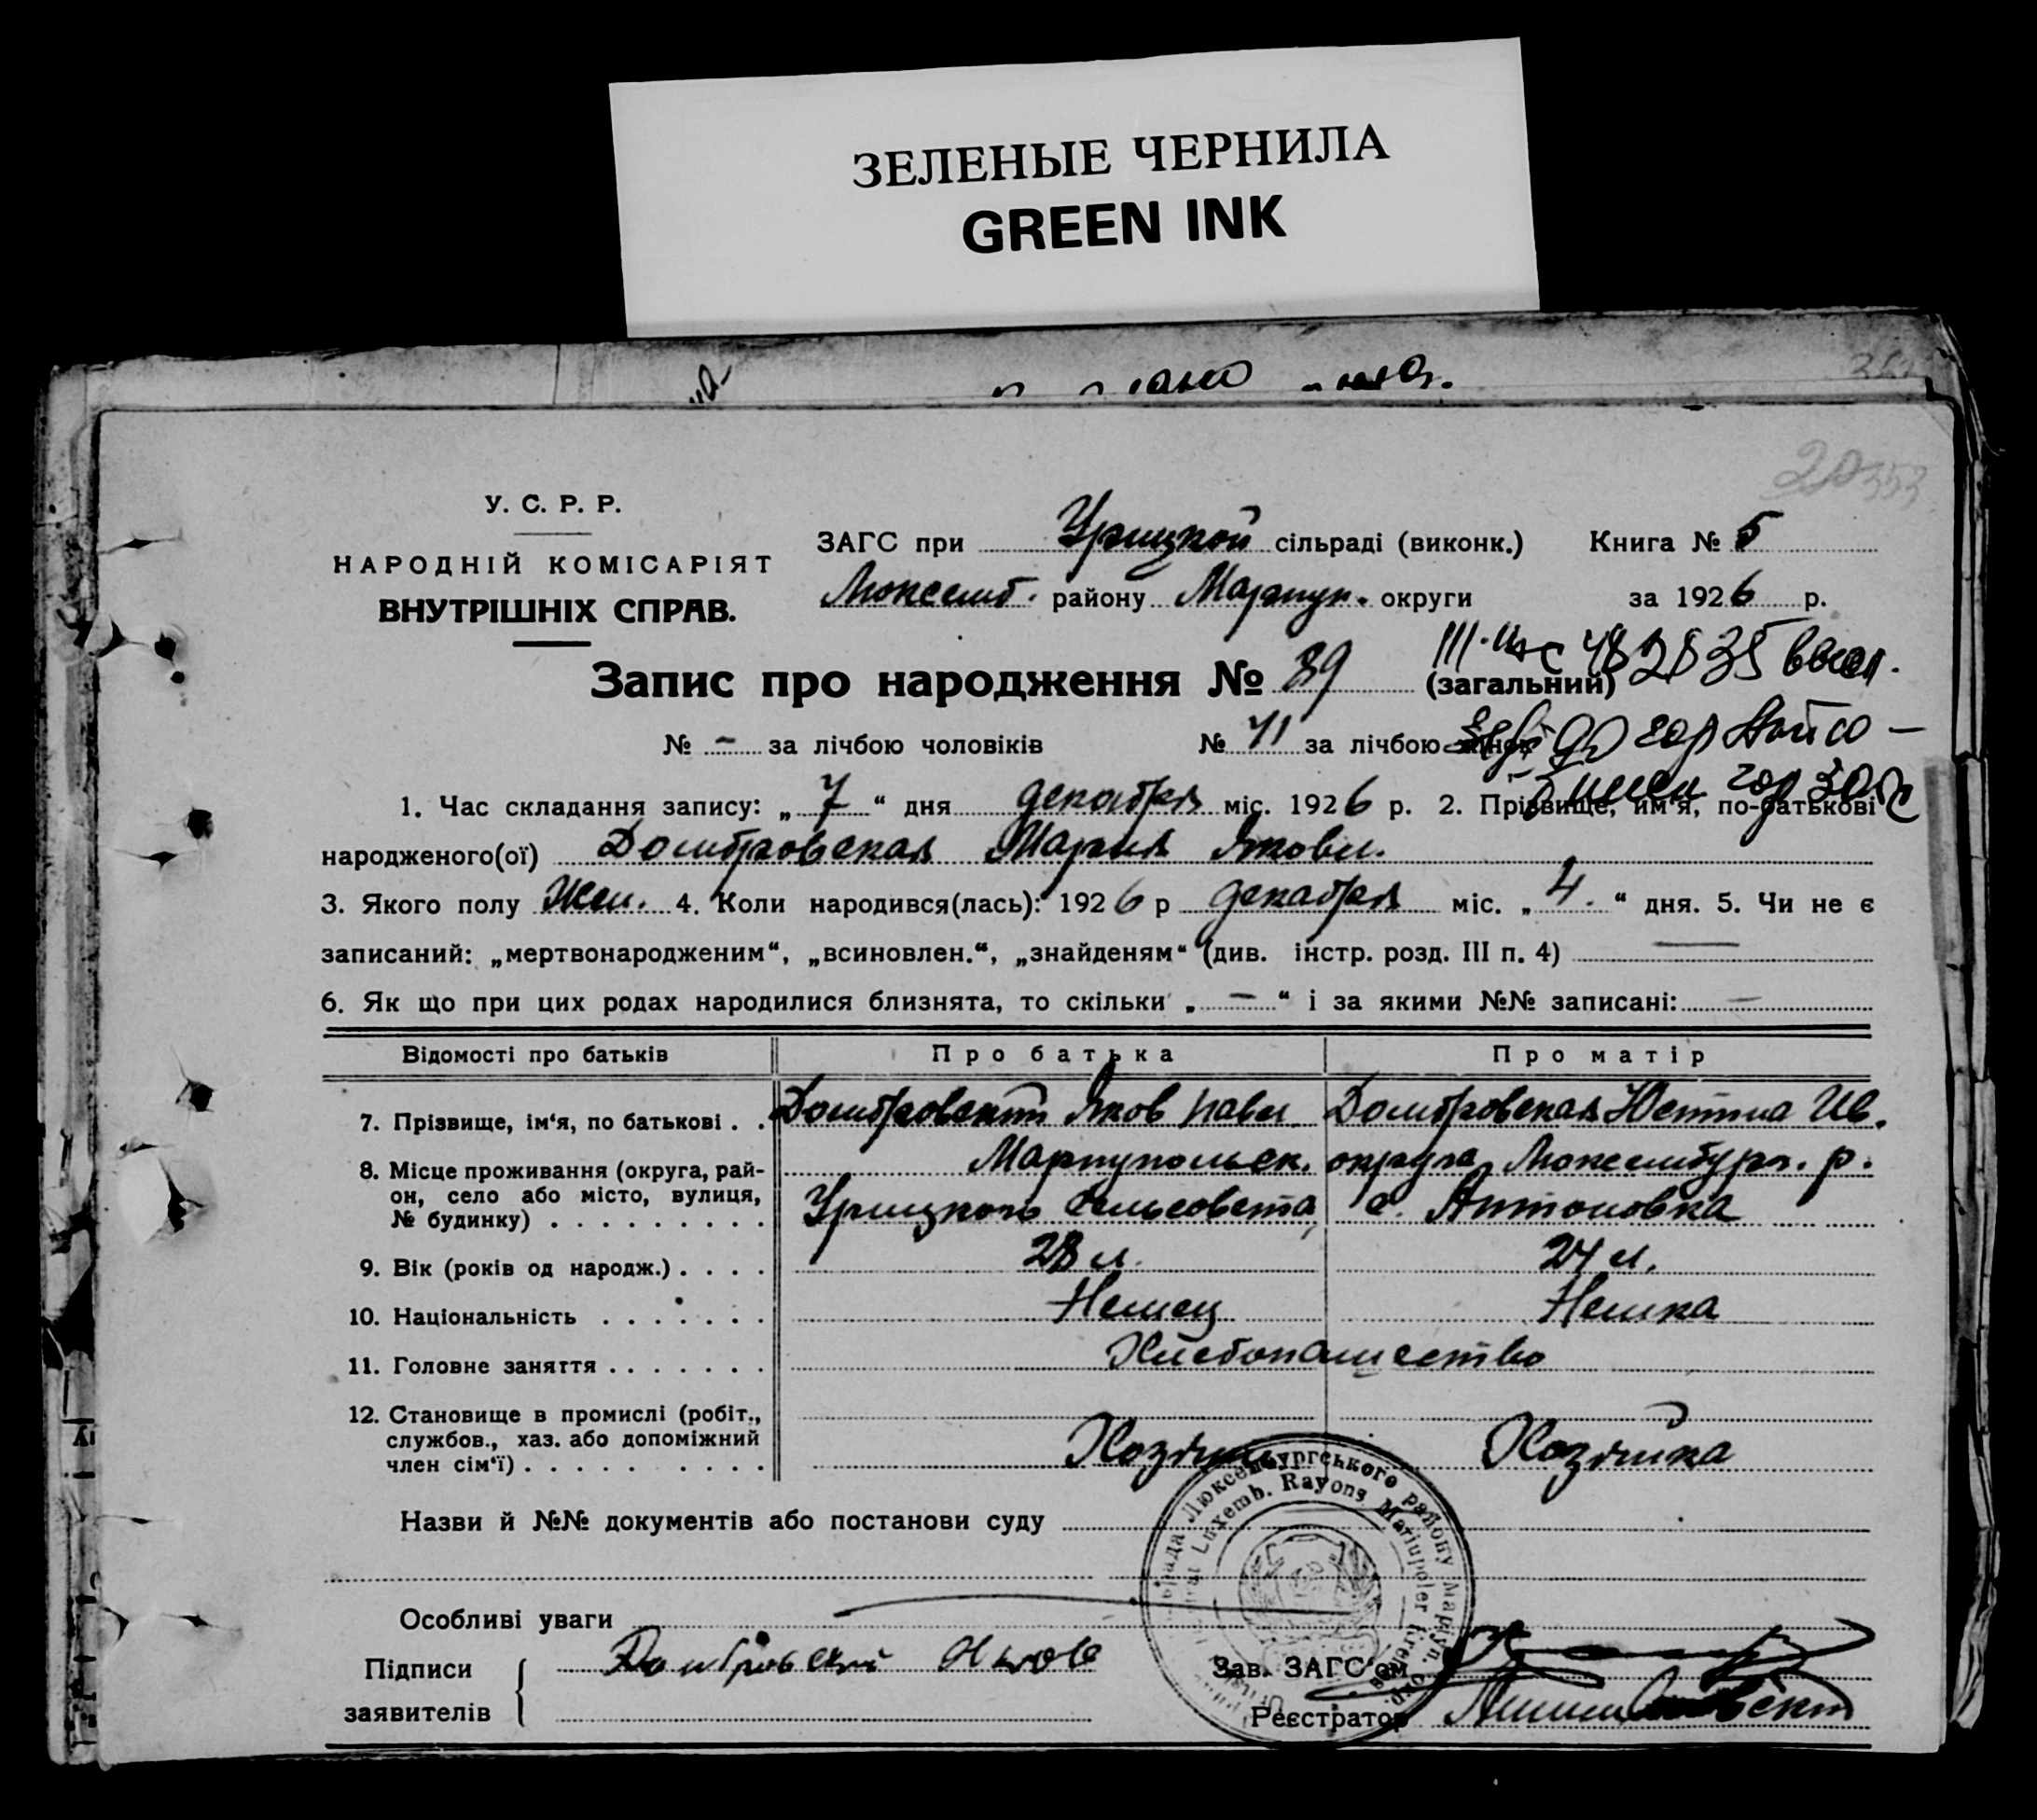 ЗЕЛЕНЫЕ ЧЕРНИЛА
GREEN INK
20 353
У. С. Р. Р.
НАРОДНІЙ КОМІСАРІЯТ
ВНУТРІШНІХ СПРАВ.
ЗАГС при Урицкой сільраді (виконк.) Книга № 5
Люксемб. району Мариуп. округи за 1926 р.
Запис про народження № 89 (загальний)
№ - за лічбою чоловіків № 41 за лічбою жінок
1. Час складання запису: „7“ дня декабря міс. 1926 р. 2. Прізвище, им'я, по-батькові
народженого(ої) Домбровская Мария Яковл.
3. Якого полу Жен. 4. Коли народився(лась): 1926 р декабря міс. „4.“ дня. 5. Чи не є
записаний: „мертвонародженим“, „всиновлен.“, „знайденям“ (див. інстр. розд. III п. 4) —
6. Як що при цих родах народилися близнята, то скільки „—“ і за якими №№ записані: —
Відомості про батьків Про батька Про матір
7. Прізвище, ім'я, по батькові . . Домбровский Яков Павл. Домбровская Юстина Ив.
8. Місце проживання (округа, рай- Мариупольск. округа, Люксембург. р.
он, село або місто, вулиця, Урицкого сельсовета, с. Антоновка
№ будинку) . . . . . . . . .
9. Вік (років од народж.) . . . . 28 л. 24 л.
10. Національність . . . . . . . Немец Немка
11. Головне заняття . . . . . . . Хлебопашество
12. Становище в промислі (робіт.,
службов., хаз. або допоміжний Хозяин Хозяйка
член сім'ї) . . . . . . . . . .
Назви й №№ документів або постанови суду
Особливі уваги
Підписи Домбровский Яков Зав. ЗАГС'ом
заявителів Реєстратор
Люксембургського району Маріуп. окр.
Luxemb. Rayons Mariupoler Kreises